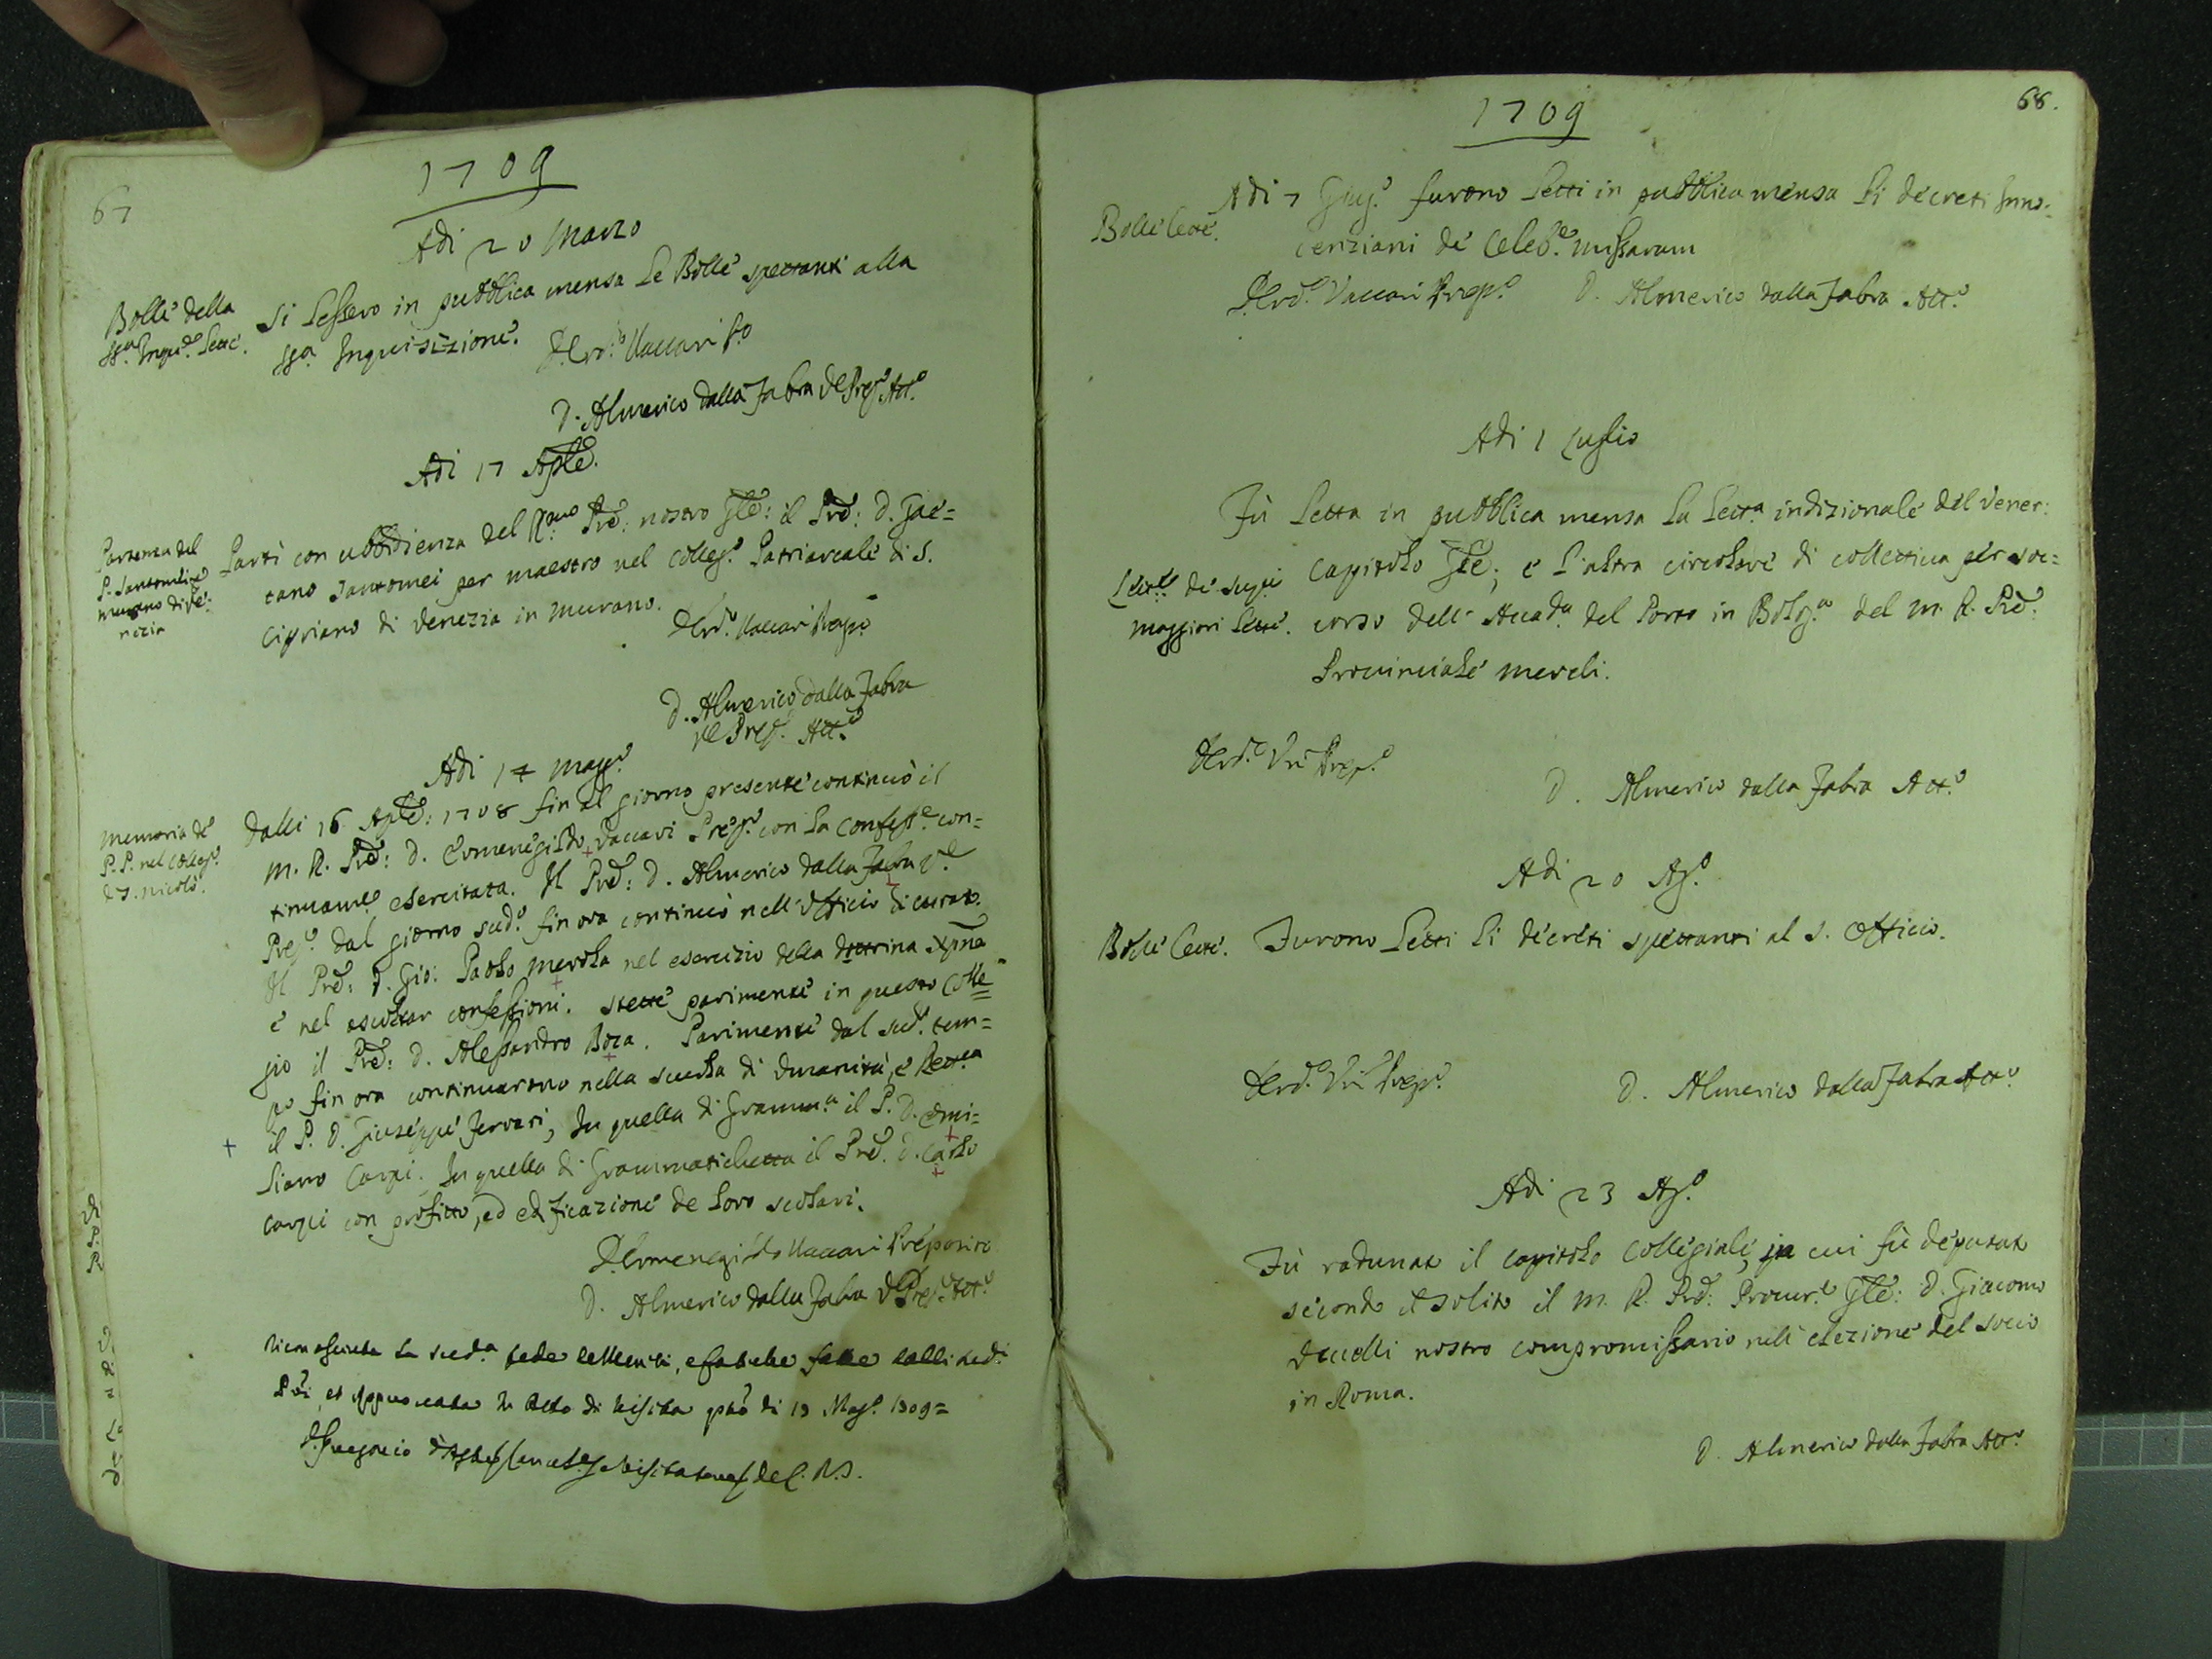 67
1709
Adi 20 Marzo
Bolle della
SSa. Inqu.e Lette.
Si lessero in pubblica mensa le Bolle spettanti alla
SSa. Inquisizione.
D. Erd.o Vaccari P.o
D. Almerico dalla Fabra V.e Prep.o Att.o
Adi 17 Aple.
Partenza del
P. Santomei x
Murano di Ve:
nezia
Partì con ubbidienza del R.mo Pre: nostro Gle: il Pre: D. Gae=
tano Santomei per maestro nel Colleg.o Patriarcale di S.
Cipriano di Venezia in Murano.
D. Erd.o Vaccari Prep.o
D. Almerico dalla Fabra
V.e Prep.o Att.o
Adi 17 Magg.o
Memoria de
P.P. nel Colleg.o
di S. Nicolò.
Dalli 16 Aple: 1708 fin al giorno presente continuò il
M. R. Pre: D. Ermenegildo Vaccari Prep.o con la confess.e con=
tinuam.e esercitata. Il Pre: D. Almerico dalla Fabra V.e
Prep.o dal giorno sud.o fin ora continuò nell'Officio di curato.
Il Pre: D. Gio: Paolo Merola nel esercizio della dottrina Xpna
e nel ascoltar confessioni. Stette parimente in questo Colle=
gio il Pre: D. Alessandro Boza. Parimente dal sud.o tem=
po fin ora continuarono nella scuola di Umanità, e Rett.ca
il P. D. Giuseppe Ferrari, In quella di Gramm.a il P. D. Emi=
liano Carpi. In quella di Grammatichetta il Pre. D. Carlo
Carpi con profitto, ed edificazione de loro scolari.
D. Ermenegildo Vaccari Preposito
D. Almerico dalla Fabra V.e Prep.o Att.o
Riconosciuta la sud.a fede de Meriti, e fatiche fatte dalli sud.i
P.ri, et approvata in Atto di visita q.to di 19 Mag.o 1709=
D. Gregorio Visitatore del. R.D.
68.
1709
Bolle lette.
Adi 7 Giug.o furono letti in pubblica mensa li decreti Inno=
cenziani de Celeb.e missarum
D. Erd.o Vaccari Prep.o D. Almerico dalla Fabra Att.o
Adi 1 Luglio
Lett.e de Sup.i
maggiori lette.
Fù letta in pubblica mensa la lett.a indizionale del Vener:
Capitolo Gle; e l'altra circolare di collettiva per soc=
corso dell'Accad.a del Porto in Bolog.a del M. R. Pre.
Provinciale Mereli.
D. Erd.o Vri Prep.o
D. Almerico dalla Fabra Att.o
Adi 20 Ag.o
Bolle lette. Furono letti li decreti spettanti al S. Officio.
D. Erd.o Vri Prep.o
D. Almerico dalla Fabra Att.o
Adi 23 Ag.o
Fù radunato il capitolo Collegiale, in cui fù deputato
secondo il solito il M. R. Pre: Procur.e Gle: D. Giacomo
Vecelli nostro compromissario nell'elezione del Socio
in Roma.
D. Almerico dalla Fabra Att.o